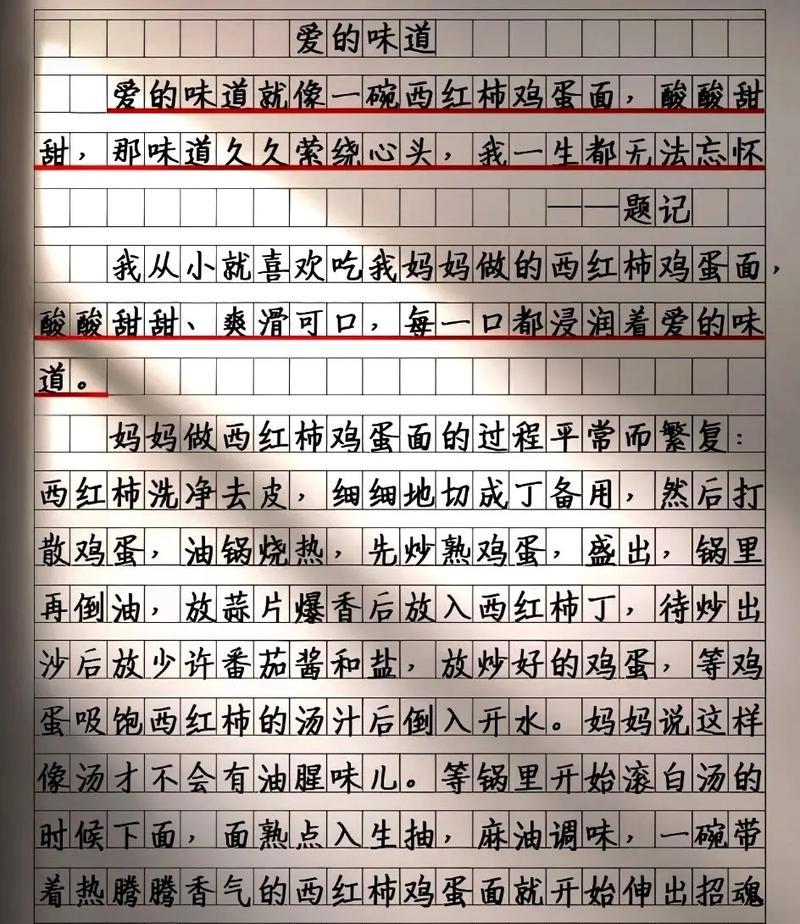 爱的味道
爱的味道就像一碗西红柿鸡蛋面，酸酸甜
甜，那味道久久萦绕心头，我一生都无法忘怀
——题记
我从小就喜欢吃我妈妈做的西红柿鸡蛋面，
酸酸甜甜、爽滑可口，每一口都浸润着爱的味
道。
妈妈做西红柿鸡蛋面的过程平常而繁复：
西红柿洗净去皮，细细地切成丁备用，然后打
散鸡蛋，油锅烧热，先炒熟鸡蛋，盛出，锅里
再倒油，放蒜片爆香后放入西红柿丁，待炒出
沙后放少许番茄酱和盐，放炒好的鸡蛋，等鸡
蛋吸饱西红柿的汤汁后倒入开水。妈妈说这样
像汤才不会有油腥味儿。等锅里开始滚白汤的
时候下面，面熟点入生抽，麻油调味，一碗带
着热腾腾香气的西红柿鸡蛋面就开始伸出招魂